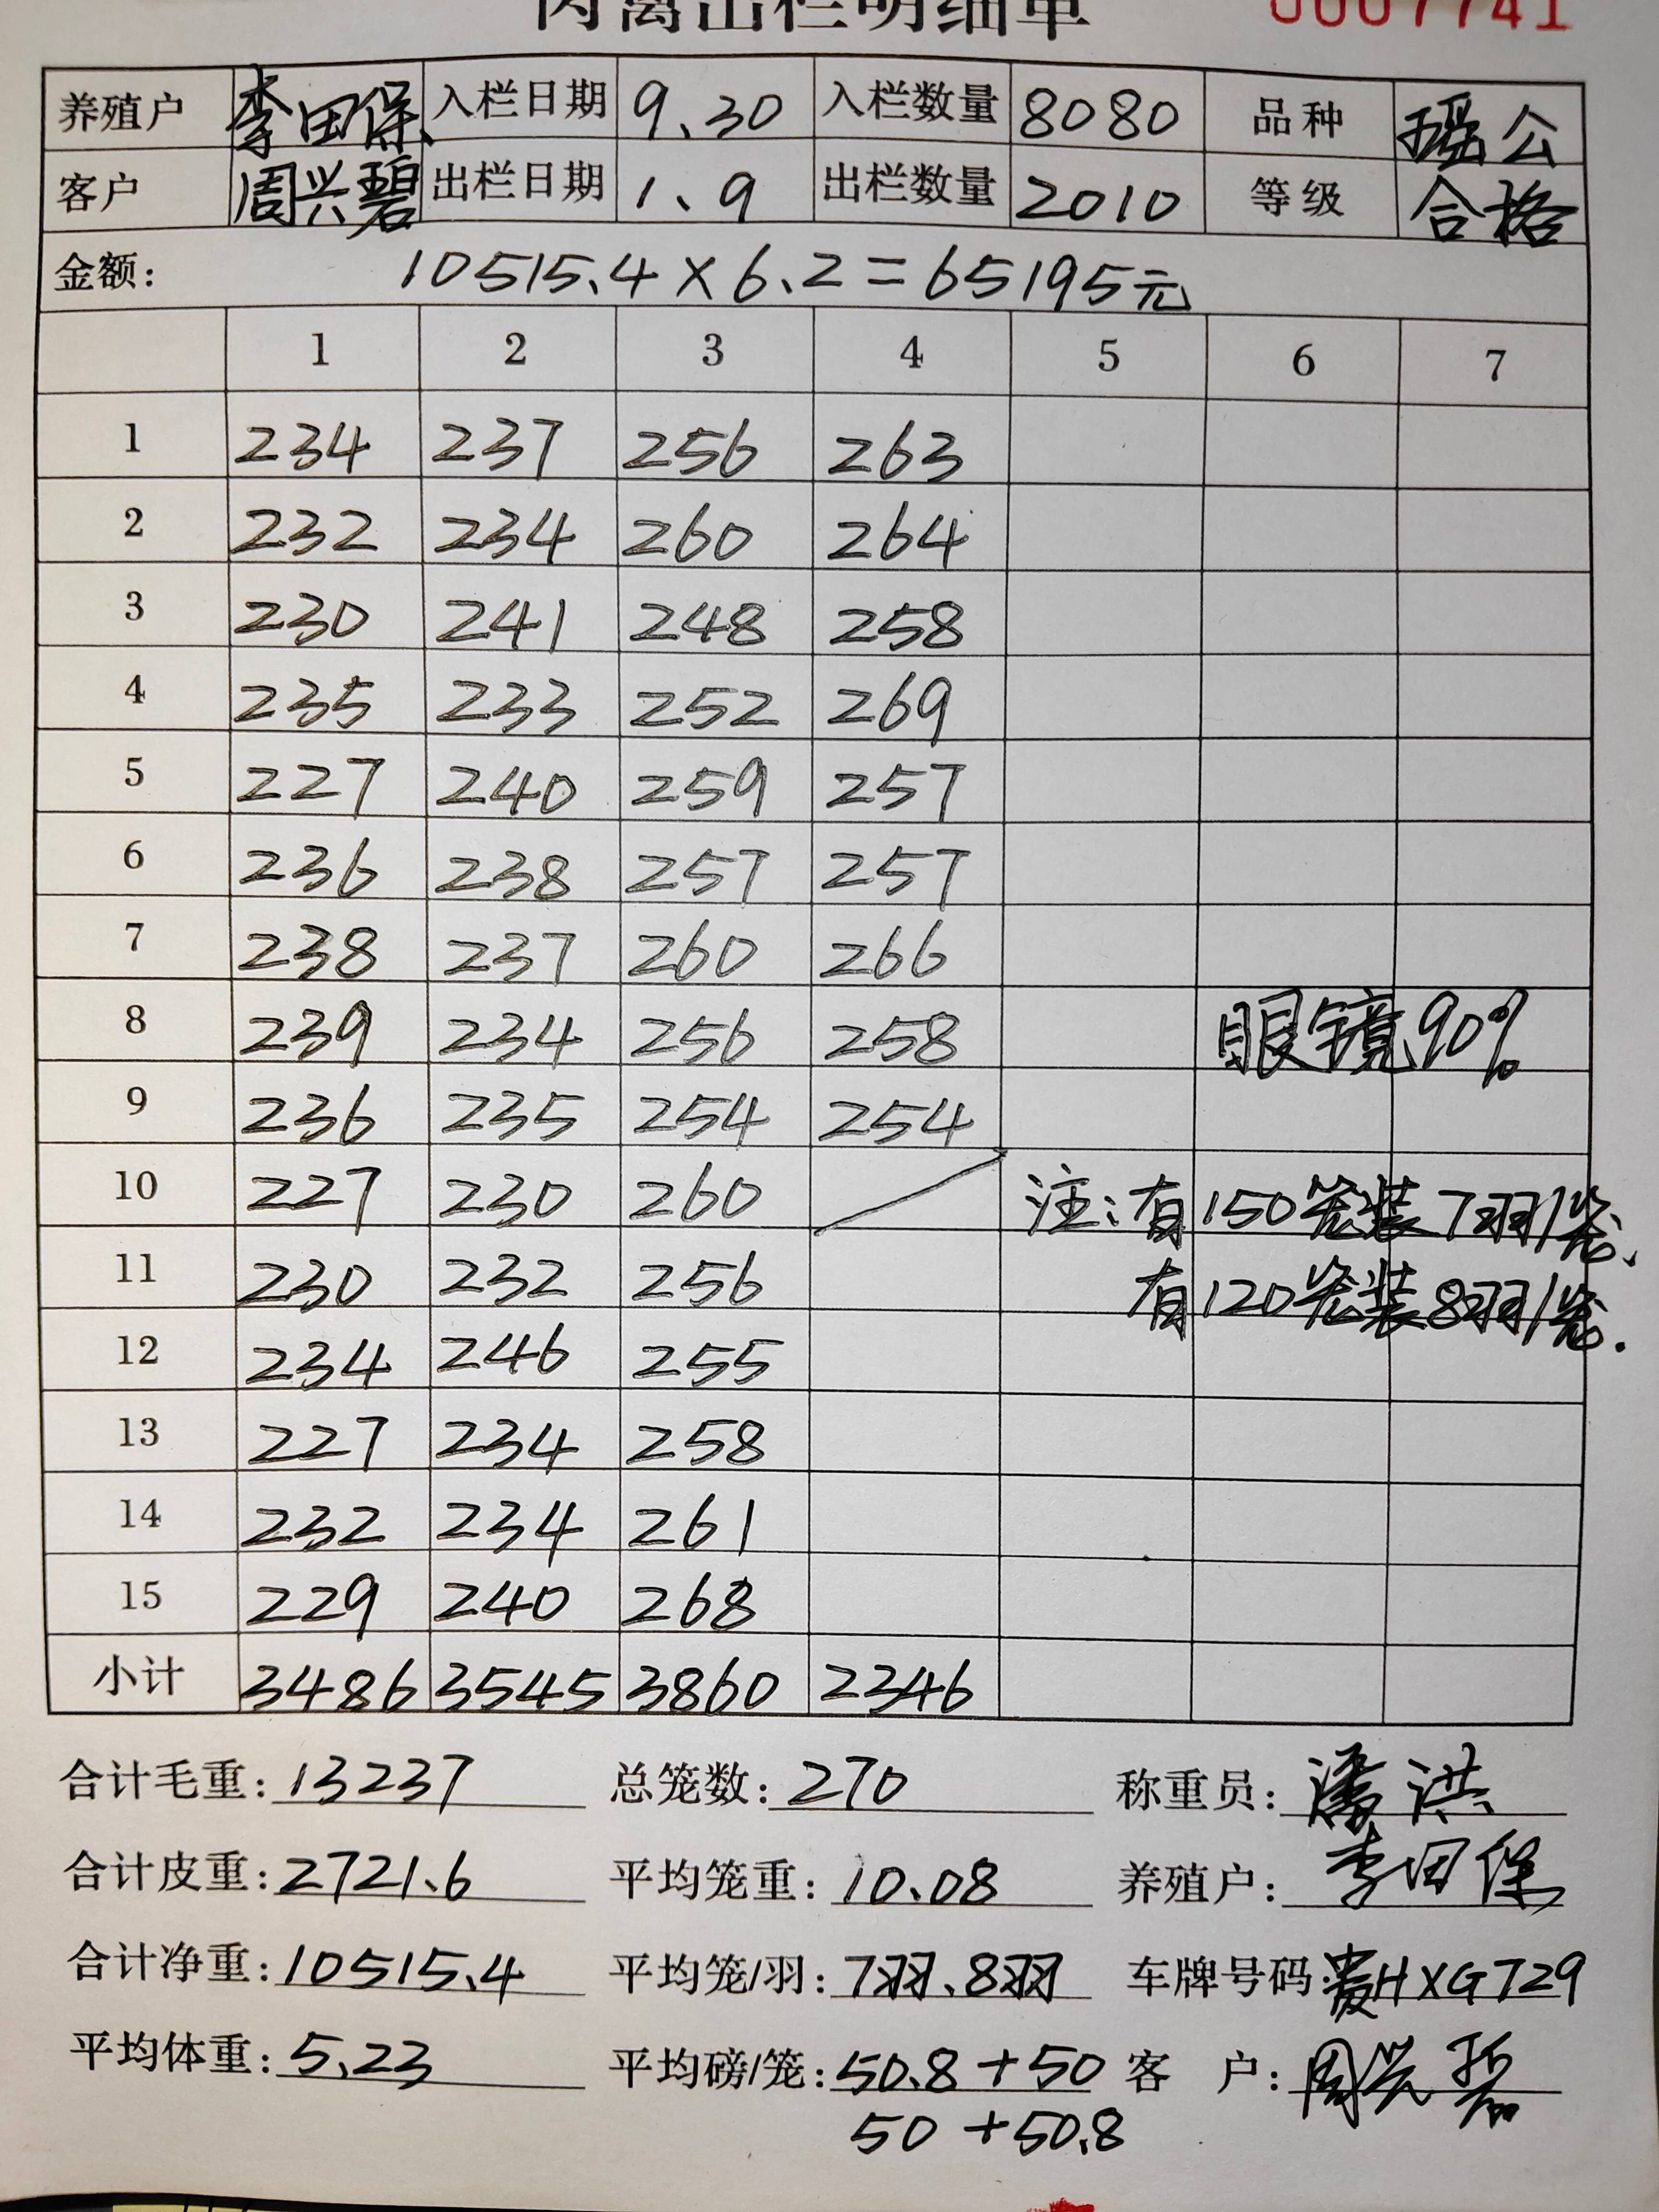 肉禽出栏明细单 0007741
养殖户 李田保 入栏日期 9.30 入栏数量 8080 品种 瑶公
客户 周兴碧 出栏日期 1.9 出栏数量 2010 等级 合格
金额: 10515.4×6.2=65195元
1 2 3 4 5 6 7
1 234 237 256 263
2 232 234 260 264
3 230 241 248 258
4 235 233 252 269
5 227 240 259 257
6 236 238 257 257
7 238 237 260 266
8 239 234 256 258 眼镜90%
9 236 235 254 254
10 227 230 260 注:有150笼装7羽/笼、
11 230 232 256 有120笼装8羽/笼.
12 234 246 255
13 227 234 258
14 232 234 261
15 229 240 268
小计 3486 3545 3860 2346
合计毛重: 13237 总笼数: 270 称重员: 潘洪
合计皮重: 2721.6 平均笼重: 10.08 养殖户: 李田保
合计净重: 10515.4 平均笼/羽: 7羽、8羽 车牌号码: 贵HXG729
平均体重: 5.23 平均磅/笼: 50.8+50 客 户: 周兴碧
50+50.8